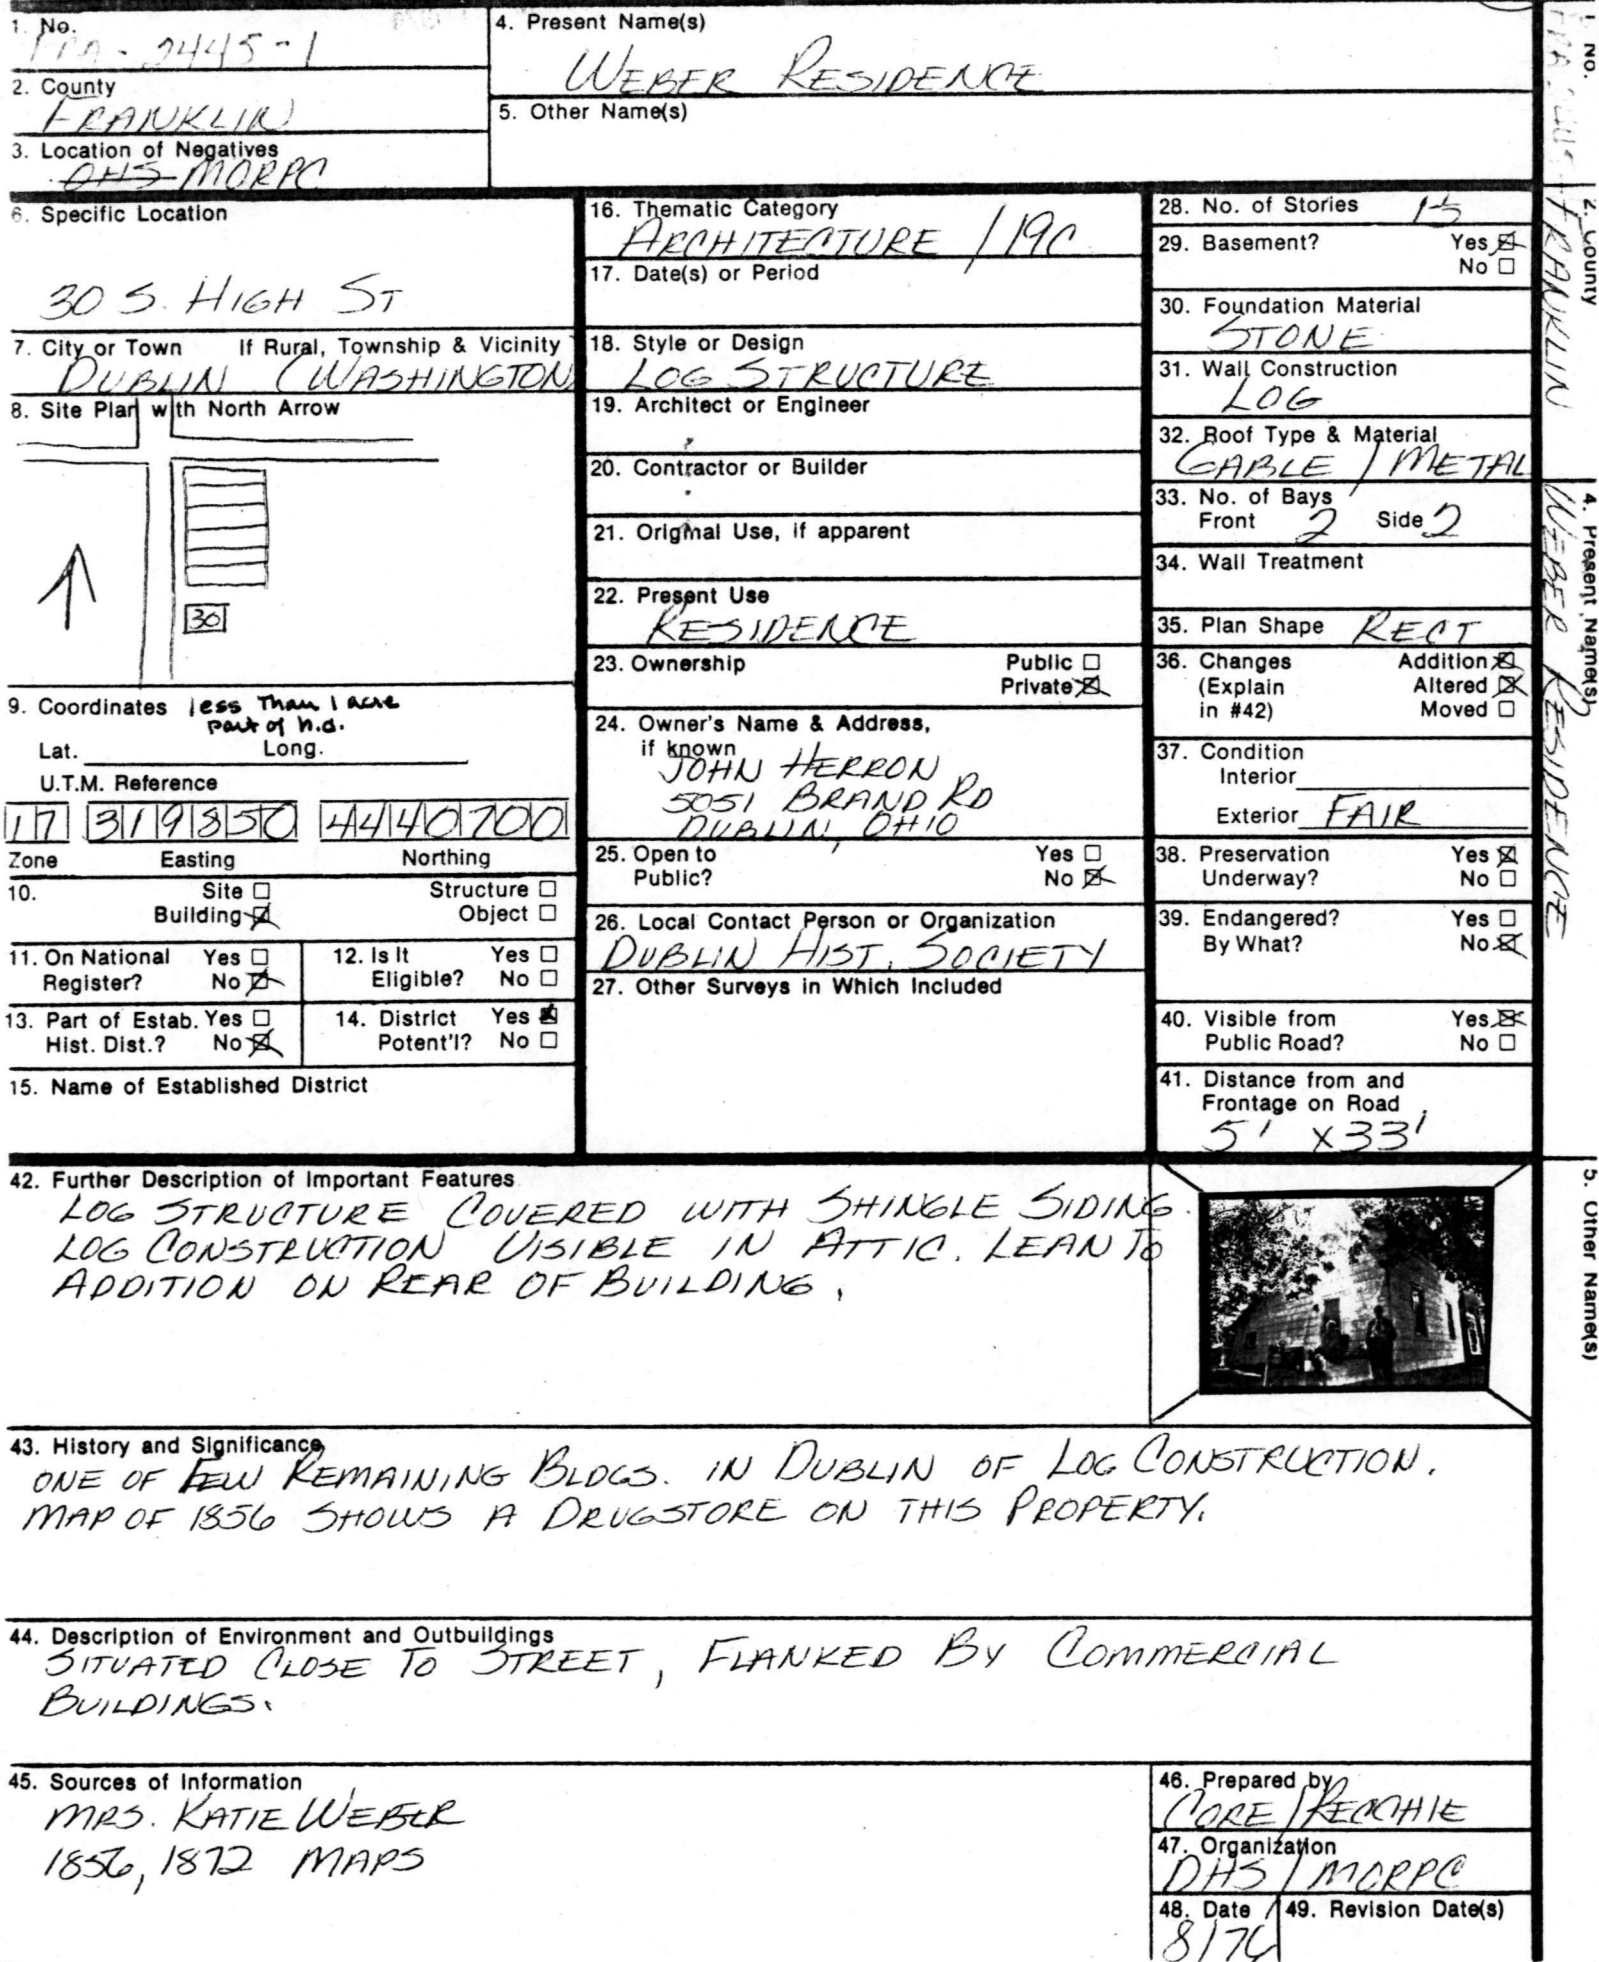 1. No.
-2445-1
2. County
FRANKLIN
3. Location of Negatives
OHS MORPC
4. Present Name(s)
WEBER RESIDENCE
5. Other Name(s)
6. Specific Location
30 S. HIGH ST
7. City or Town If Rural, Township & Vicinity
DUBLIN (WASHINGTON
8. Site Plan with North Arrow
30
9. Coordinates less than 1 acre
part of h.d.
Lat. Long.
U.T.M. Reference
17 319850 4440700
Zone Easting Northing
10. Site ☐ Structure ☐
Building ☒ Object ☐
11. On National Yes ☐
Register? No ☒
12. Is It Yes ☐
Eligible? No ☐
13. Part of Estab. Yes ☐
Hist. Dist.? No ☒
14. District Yes ☒
Potent'l? No ☐
15. Name of Established District
16. Thematic Category
ARCHITECTURE / 19C
17. Date(s) or Period
18. Style or Design
LOG STRUCTURE
19. Architect or Engineer
20. Contractor or Builder
21. Original Use, if apparent
22. Present Use
RESIDENCE
23. Ownership Public ☐
Private ☒
24. Owner's Name & Address,
if known
JOHN HERRON
5051 BRAND RD
DUBLIN, OHIO
25. Open to Yes ☐
Public? No ☒
26. Local Contact Person or Organization
DUBLIN HIST. SOCIETY
27. Other Surveys in Which Included
28. No. of Stories
29. Basement? Yes ☒
No ☐
30. Foundation Material
STONE
31. Wall Construction
LOG
32. Roof Type & Material
GABLE / METAL
33. No. of Bays
Front 2 Side 2
34. Wall Treatment
35. Plan Shape RECT
36. Changes Addition ☒
(Explain Altered ☒
in #42) Moved ☐
37. Condition
Interior
Exterior FAIR
38. Preservation Yes ☒
Underway? No ☐
39. Endangered? Yes ☐
By What? No ☒
40. Visible from Yes ☒
Public Road? No ☐
41. Distance from and
Frontage on Road
5' X 33'
42. Further Description of Important Features
LOG STRUCTURE COVERED WITH SHINGLE SIDING.
LOG CONSTRUCTION VISIBLE IN ATTIC. LEAN TO
ADDITION ON REAR OF BUILDING.
43. History and Significance
ONE OF FEW REMAINING BLDGS. IN DUBLIN OF LOG CONSTRUCTION.
MAP OF 1856 SHOWS A DRUGSTORE ON THIS PROPERTY.
44. Description of Environment and Outbuildings
SITUATED CLOSE TO STREET, FLANKED BY COMMERCIAL
BUILDINGS.
45. Sources of Information
MRS. KATIE WEBER
1856, 1872 MAPS
46. Prepared by
CORE / RECCHIE
47. Organization
DHS / MORPC
48. Date
8/76
49. Revision Date(s)
1. No.
2. County
FRANKLIN
4. Present Name(s)
WEBER RESIDENCE
5. Other Name(s)